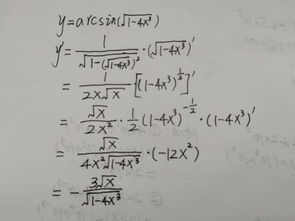 y=arcsin(√(1-4x³))
y'=1/√(1-(√(1-4x³))²)·(√(1-4x³))'
=1/(2x√x)·[(1-4x³)^(1/2)]'
=√x/(2x²)·1/2·(1-4x³)^(-1/2)·(1-4x³)'
=√x/(4x²√(1-4x³))·(-12x²)
=-3√x/√(1-4x³)